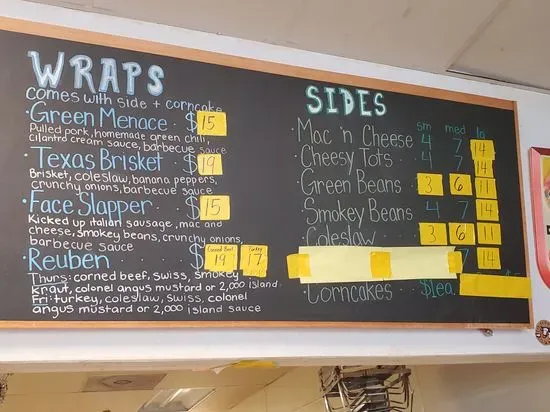 WRAPS
comes with side + corncake
·Green Menace · $15
Pulled pork, homemade green chili,
cilantro cream sauce, barbecue sauce
·Texas Brisket · $19
Brisket, coleslaw, banana peppers,
crunchy onions, barbecue sauce
·Face Slapper · $15
Kicked up italian sausage, mac and
cheese, smokey beans, crunchy onions,
barbecue sauce
·Reuben $ Corned Beef 19 Turkey 17
Thurs: corned beef, swiss, smokey
kraut, colonel angus mustard or 2,000 island
Fri: turkey, coleslaw, swiss, colonel
angus mustard or 2,000 island sauce
SIDES
sm med la
·Mac 'n Cheese 4 7 14
·Cheesy Tots · 4 7 14
·Green Beans 3 6 11
·Smokey Beans 4 7 14
·Coleslaw 3 6 11
7 14
·Corncakes $1ea.